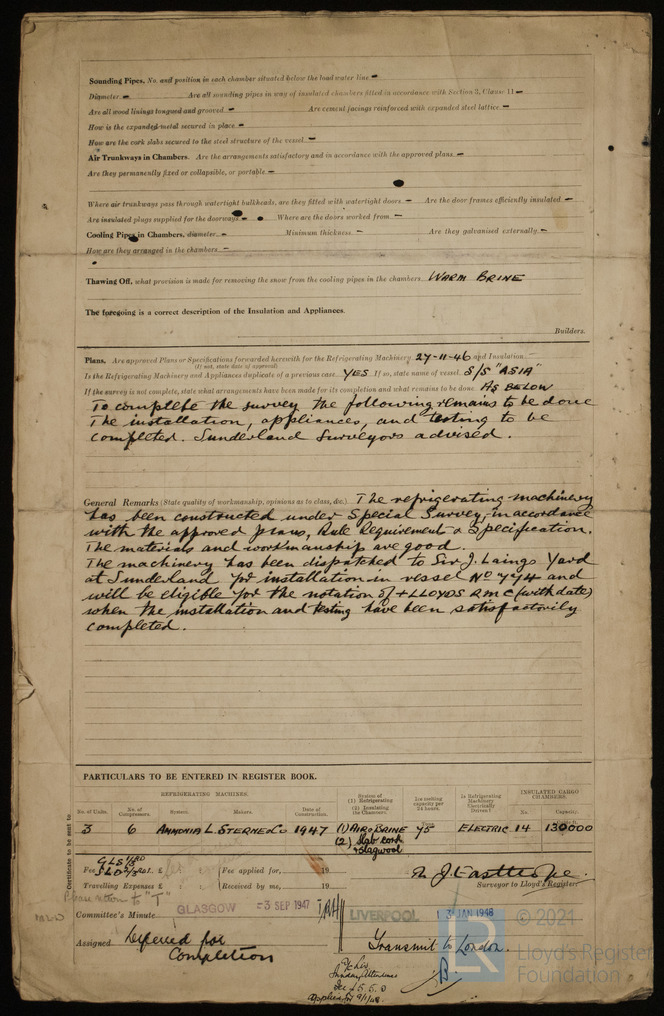 Sounding Pipes, No. and position in each chamber situated below the load water line –
Diameter – Are all sounding pipes in way of insulated chambers fitted in accordance with Section 3, Clause 11 –
Are all wood linings tongued and grooved – Are cement facings reinforced with expanded steel lattice –
How is the expanded metal secured in place –
How are the cork slabs secured to the steel structure of the vessel –
Air Trunkways in Chambers. Are the arrangements satisfactory and in accordance with the approved plans –
Are they permanently fixed or collapsible, or portable –
Where air trunkways pass through watertight bulkheads, are they fitted with watertight doors – Are the door frames efficiently insulated –
Are insulated plugs supplied for the doorways – Where are the doors worked from –
Cooling Pipes in Chambers, diameter – Minimum thickness – Are they galvanised externally –
How are they arranged in the chambers –
Thawing Off, what provision is made for removing the snow from the cooling pipes in the chambers WARM BRINE
The foregoing is a correct description of the Insulation and Appliances.
Builders.
Plans. Are approved Plans or Specifications forwarded herewith for the Refrigerating Machinery 27-11-46 and Insulation –
(If not, state date of approval)
Is the Refrigerating Machinery and Appliances duplicate of a previous case YES If so, state name of vessel S/S "ASIA"
If the survey is not complete, state what arrangements have been made for its completion and what remains to be done AS BELOW
To complete the survey the following remains to be done
The installation, appliances, and testing to be
completed. Sunderland Surveyors advised.
General Remarks (State quality of workmanship, opinions as to class, &c.) The refrigerating machinery
has been constructed under Special Survey, in accordance
with the approved plans, Rule Requirements & Specification.
The materials and workmanship are good.
The machinery has been dispatched to Sir J. Laings Yard
at Sunderland for installation in vessel No 774 and
will be eligible for the notation of + LLOYDS RMC (with date)
when the installation and testing have been satisfactorily
completed.
PARTICULARS TO BE ENTERED IN REGISTER BOOK.
REFRIGERATING MACHINES. System of (1) Refrigerating (2) Insulating the Chambers. Ice melting capacity per 24 hours. Is Refrigerating Machinery Electrically Driven? INSULATED CARGO CHAMBERS.
No. of Units. No. of Compressors. System. Makers. Date of Construction. Tons No. Capacity.
3 6 AMMONIA L. STERNE & Co 1947 (1) AIR & BRINE 75 ELECTRIC 14 130000
(2) Slab cork
+ Slagwool
Certificate to be sent to
GLS 1/3RD
SLD 2/3RDS. Fee £ Fee applied for, 19
Travelling Expenses £ Received by me, 19
J. Easthope
Surveyor to Lloyd's Register.
Committee's Minute GLASGOW -3 SEP 1947 LIVERPOOL 13 JAN 1948
Assigned Deferred for
Completion
Transmit to London.
Fee £5.5.0
Applied for 9/1/48
LR
© 2021
Lloyd's Register
Foundation